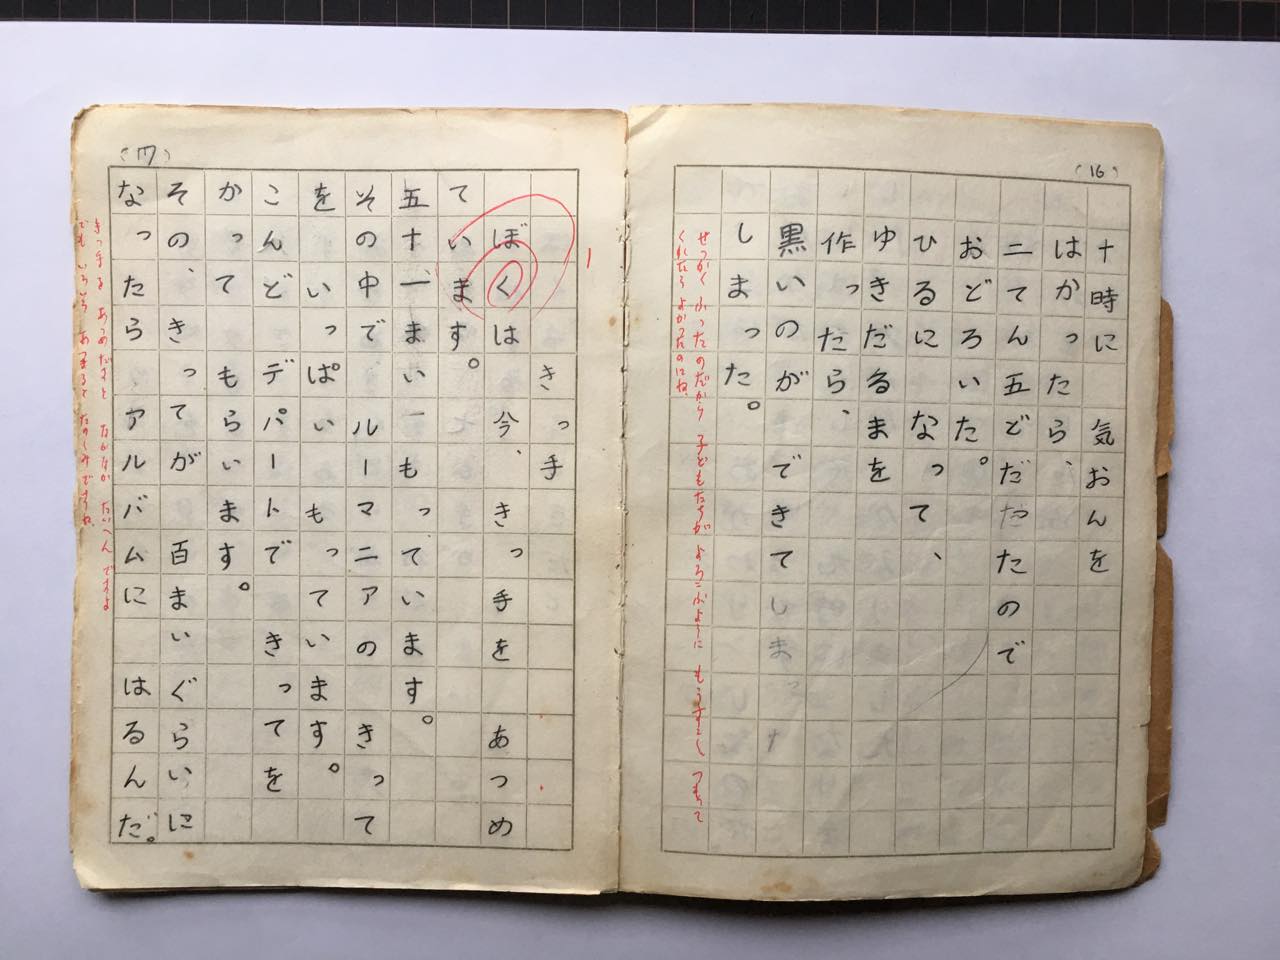 (16)
十時に　気おんを
はかったら、
二てん五どだたたので
おどろいた。
ひるになって、
ゆきだるまを
作ったら、
黒いのができてしまっ
しまった。
せっかく ふったのだから 子どもたちが よろこぶように もうすこし つもって
くれたら よかったのにね
(17)
きっ手
ぼくは　今、きっ手を　あつめ
ています。
五十一まい一もっています。
その中で　ルーマニアの　きって
を　いっぱい　もっています。
こんど　デパートで　きってを
かって　もらいます。
その、きってが　百まいぐらいに
なったら　アルバムに　はるんだ。
きっ手を あつめだすと なかなか たいへん ですよ
でも いろいろ あつまると たのしみですね